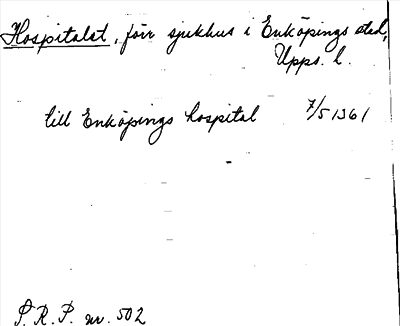 Hospitalet, förr sjukhus i Enköpings stad,
Upps. l.
till Enköpings hospital 7/5 1361
S. R. P. nr. 502